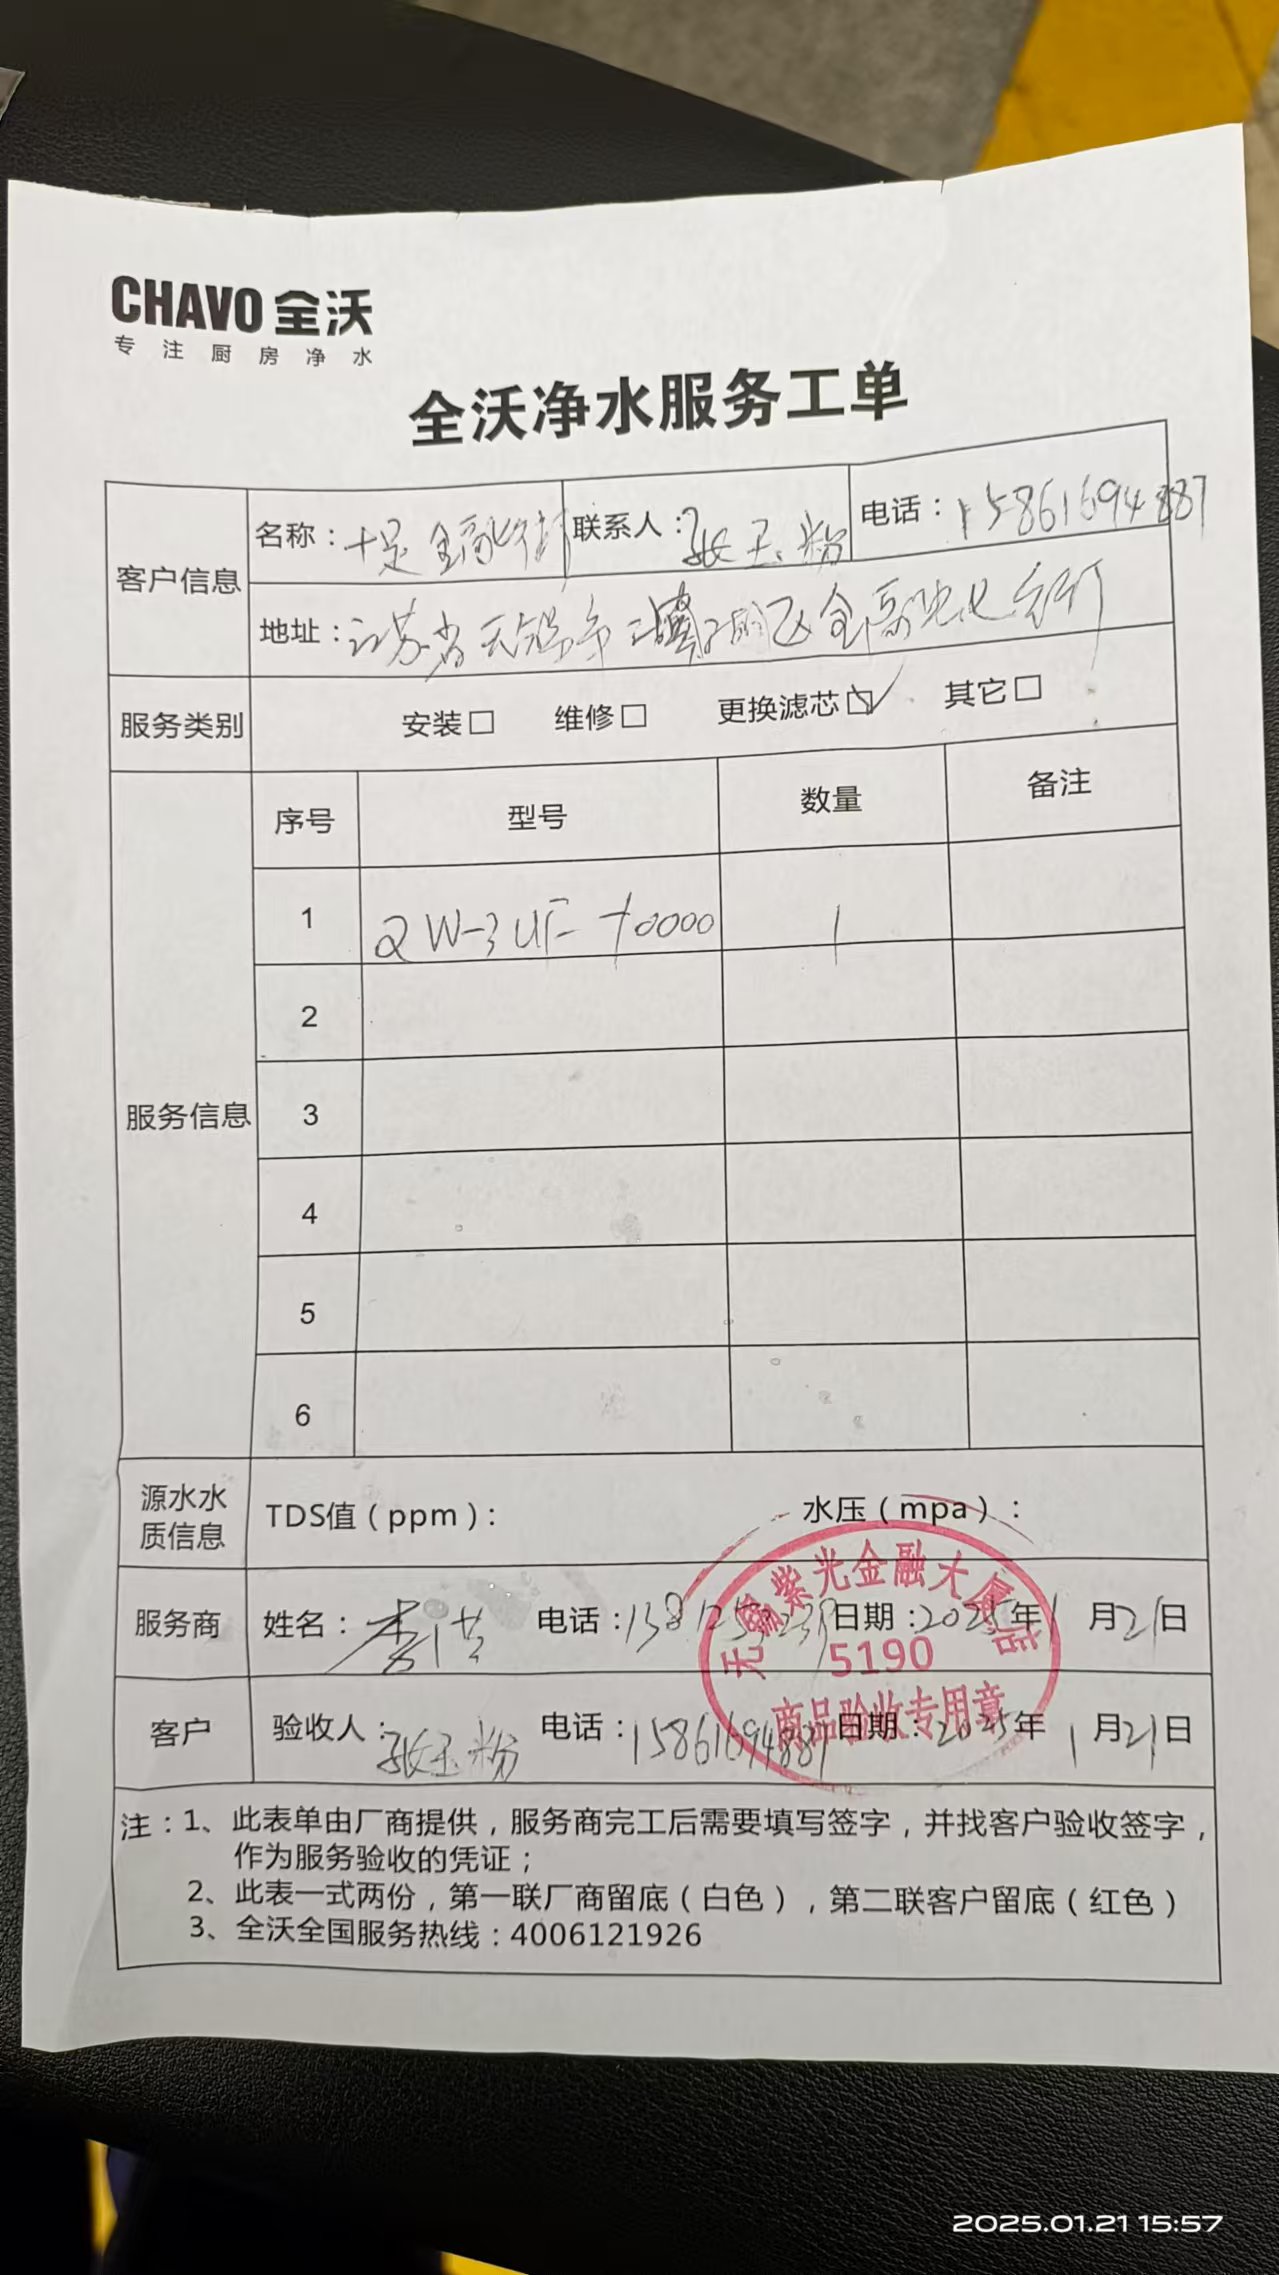 CHAVO 全沃
专注厨房净水
全沃净水服务工单
客户信息 名称：十足 联系人：张玉粉 电话：15861694887
地址：江苏省无锡市
服务类别 安装□ 维修□ 更换滤芯☑ 其它□
服务信息 序号 型号 数量 备注
1 QW-3UF-10000 1
2
3
4
5
6
源水水质信息 TDS值（ppm）： 水压（mpa）：
服务商 姓名：李 电话： 日期：2025年1月21日
客户 验收人：张玉粉 电话：15861694887 日期：2025年1月21日
无锡紫光金融大厦店
5190
商品验收专用章
注：1、此表单由厂商提供，服务商完工后需要填写签字，并找客户验收签字，
作为服务验收的凭证；
2、此表一式两份，第一联厂商留底（白色），第二联客户留底（红色）
3、全沃全国服务热线：4006121926
2025.01.21 15:57